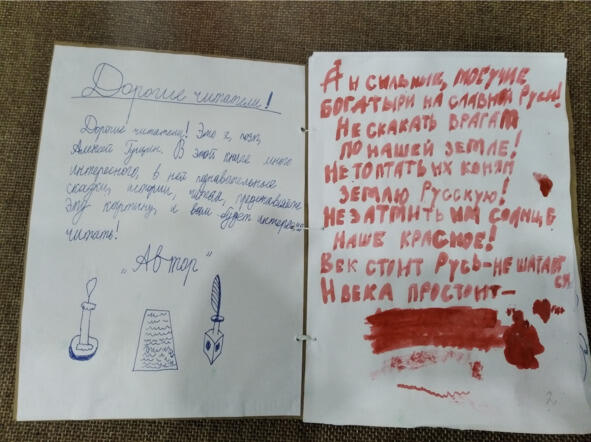 Дорогие читатели!
Дорогие читатели! Это я, поэт,
Алексей В этой книге много
интересного, в ней поучительные
сказки, истории, читая, представляйте
эту картину, и вам будет интересно
читать!
"Автор"
А и сильные, могучие
БОГАТЫРИ НА СЛАВНОЙ РУСИ!
НЕ СКАКАТЬ ВРАГАМ
ПО НАШЕЙ ЗЕМЛЕ!
НЕ ТОПТАТЬ ИХ КОНЯМ
ЗЕМЛЮ РУССКУЮ!
НЕ ЗАТМИТЬ ИМ СОЛНЦЕ
НАШЕ КРАСНОЕ!
ВЕК СТОИТ РУСЬ - НЕ ШАТАЕТ
СЯ
И ВЕКА ПРОСТОИТ -
2